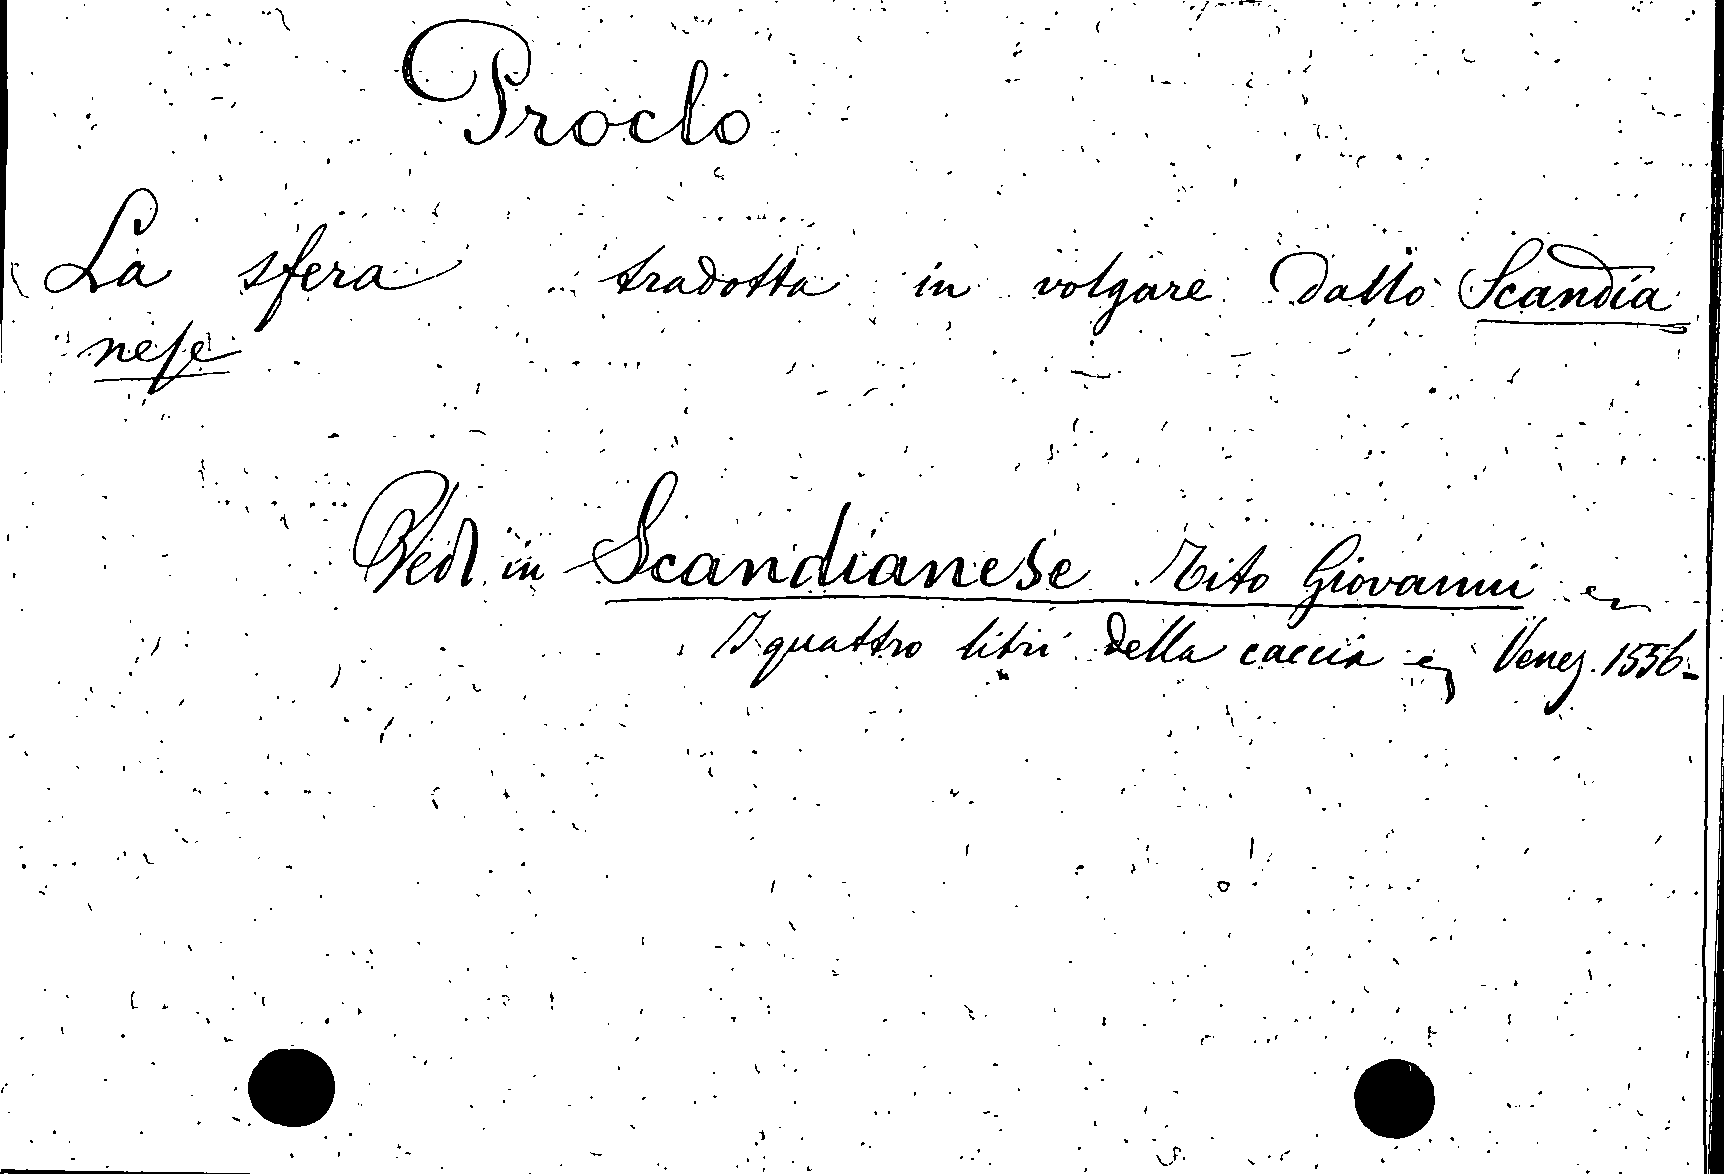 Proclo
La sfera tradotta in volgare dallo Scandia
nese
Vedi in Scandianese Tito Giovanni
I quattro libri della caccia Venez. 1556-